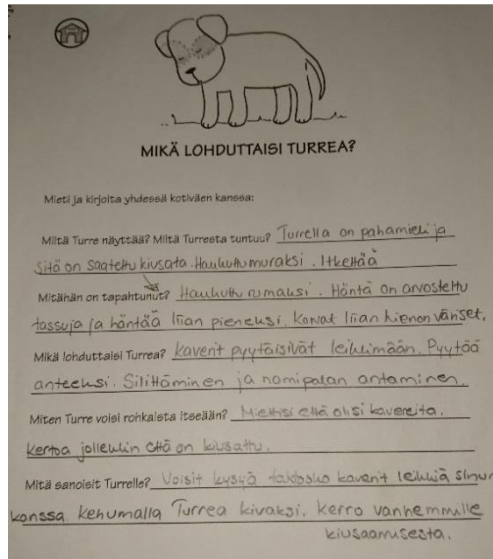 MIKÄ LOHDUTTAISI TURREA?
Mieti ja kirjoita yhdessä kotiväen kanssa:
Miltä Turre näyttää? Miltä Turresta tuntuu? Turrella on pahamieli ja
sitä on saatettu kiusata. Haukuttu muraksi. Itkettää
Mitähän on tapahtunut? Haukuttu rumaksi. Häntä on arvosteltu
tassuja ja häntää liian pieneksi. Korvat liian hienon väriset.
Mikä lohduttaisi Turrea? kaverit pyytäisivät leikkimään. Pyytää
anteeksi. Silittäminen ja namipalan antaminen.
Miten Turre voisi rohkaista itseään? Miettisi että olisi kavereita.
kertoa jollekin että on kiusattu.
Mitä sanoisit Turrelle? Voisit kysyä kaverit leikkiä sinun
kanssa kehumalla Turrea kivaksi. kerro vanhemmille
kiusaamisesta.